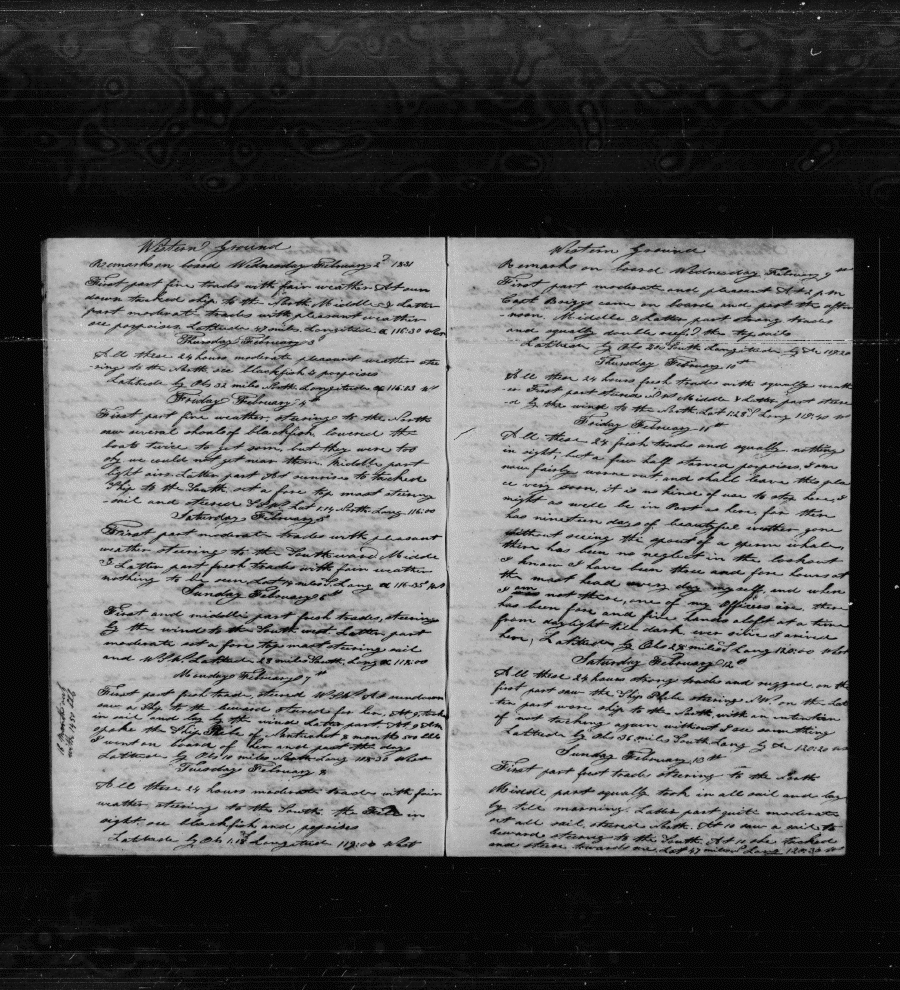 Western Ground
Remarks on board Wednesday February 2d 1831
First part fine trades with fair weather At sun
down tacked ship to the North Middle & Latter
part moderate trades with pleasant weather
see porpoises Lattitude 43 miles Longitude 116:30 West
Thursday February 3d
All these 24 hours moderate pleasant weather stee
ring to the North see blackfish & porpoises
Lattitude by Obs 32 miles North Longitude 116:23 Wt
Friday February 4th
First part fine weather steering to the North
saw several shoals of blackfish lowered the
boats twice to get some, but they were too
we could not get near them. Middle part
light airs Latter part At sunrise to tacked
Ship to the South, set a fore top mast steering
sail and steered Lat 1:14 North Long 116:00
Saturday February 5
First part moderate trades with pleasant
weather steering to the Southward Middle
& Latter part fresh trades with fair weather
nothing to be seen Lat miles S Long 116:35 West
Sunday February 6th
First and middle part fresh trades, steering
by the wind to the South west Latter part
moderate set a fore top mast steering sail
and Lattitude 28 miles South, Long 118:00
Monday February 7th
First part fresh trades, steered At sundown
saw a Ship to the leeward steered for her, At 9, took
in sail and lay by the wind Later part. At 8 AM
spoke the Ship of Nantucket 8 months 500 bbls
I went on board of her and past the day
Lattitude by Obs 10 miles South Long 118:30 West
Tuesday February 8
All these 24 hours moderate trades with fair
weather steering to the South the in
sight, see blackfish and porpoises
Lattitude by Obs 1:18 Longitude 119:00 West
8 months out
with 1450 bbls
Western Ground
Remarks on board Wednesday February 9
First part moderate and pleasant At 2 pm
Capt Briggs came on board and past the after
-noon. Middle & Latter part strong trades
and squally double reef'd the topsails
Lattitude by Obs South Longitude by
Thursday February 10th
All these 24 hours fresh trades with squally weath
-er First part steered Middle & Latter part steere
-d by the wind to the North Lat 1:28 S Long
Friday February 11th
All these 24 fresh trades and squally nothing
in sight, but a few half starved porpoises, I am
now fairly wornout and shall leave this pla
ce very soon, it is no kind of use to stop here, I
might as well be in Port as here, for there
has nineteen days of beautiful weather gone
without seeing the spout of a sperm whale,
there has been no neglect in the lookout
I know I have been three and four hours at
the mast head every day myself, and when
I am not there, one of my Officers is, there
has been four and five hands aloft at a time
from daylight till dark ever since I arrived
here, Lattitude by Obs 28 miles Long 120:00 West
Saturday February 12th
All these 24 hours strong trades and rugged on the
first part saw the Ship steering on the lat
-ter part wore ship to the North, with an intention
of not tacking again without I see something
Lattitude by Obs 36 miles South Long by 120:20
Sunday February 13th
First part fresh trades steering to the North
Middle part squally took in all sail and lay
by till morning. Latter part quite moderate
set all sail, steered North. At 10 saw a sail to
leeward steering to the South. At 10 she tacked
and steered towards me, Lat 47 miles S Long 120:30